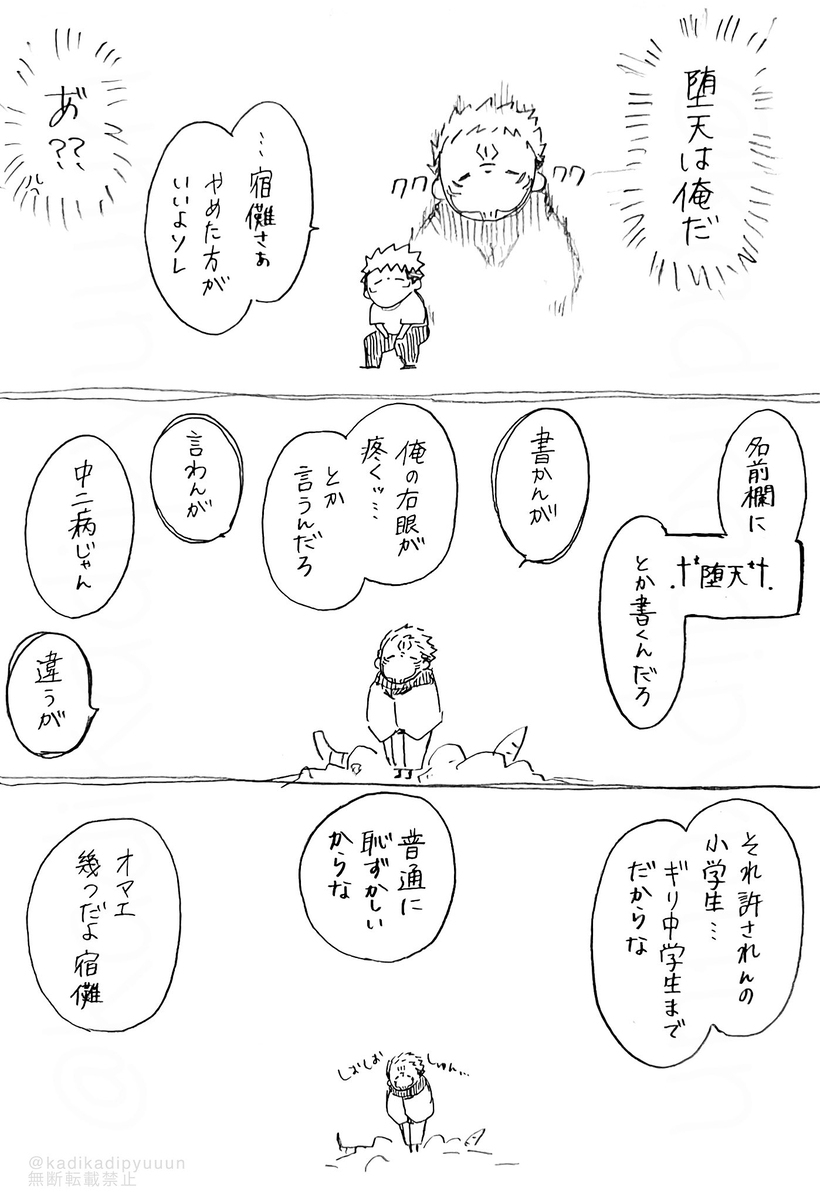 堕天は俺だ
クク
クク
…宿儺さぁ
やめた方が
いいよソレ
あ゛??
名前欄に
.†堕天†.
とか書くんだろ
書かんが
俺の右眼が
疼くッ…
とか
言うんだろ
言わんが
中二病じゃん
違うが
それ許されんの
小学生…
ギリ中学生まで
だからな
普通に
恥ずかしい
からな
オマエ
幾つだよ宿儺
しおしお
しゅん…
@kadikadipyuuun
無断転載禁止